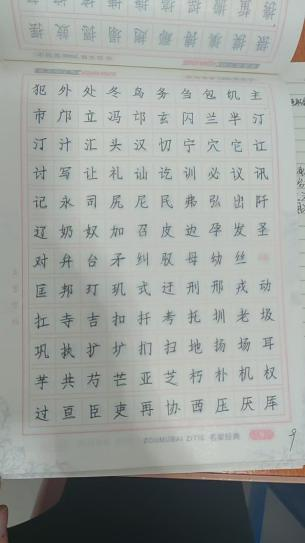 犯外处冬鸟务刍包饥主
市邝立冯邙玄闪兰半汀
汀汁汇头汉切宁穴它让
讨写让礼讪讫训必议讯
记永司尻尼民弗弘出阡
辽奶奴加召皮边孕发圣
对弁台矛纠驭母幼丝
匡邦玎玑式迂刑邢戎动
扛寺吉扣扦考托圳老圾
巩扶扩圹扪扫地扬场耳
芊共芍芒亚芝朽朴机权
过亘臣吏再协西压厌厍
ZOUMUBAI ZITIE 名家经典
9